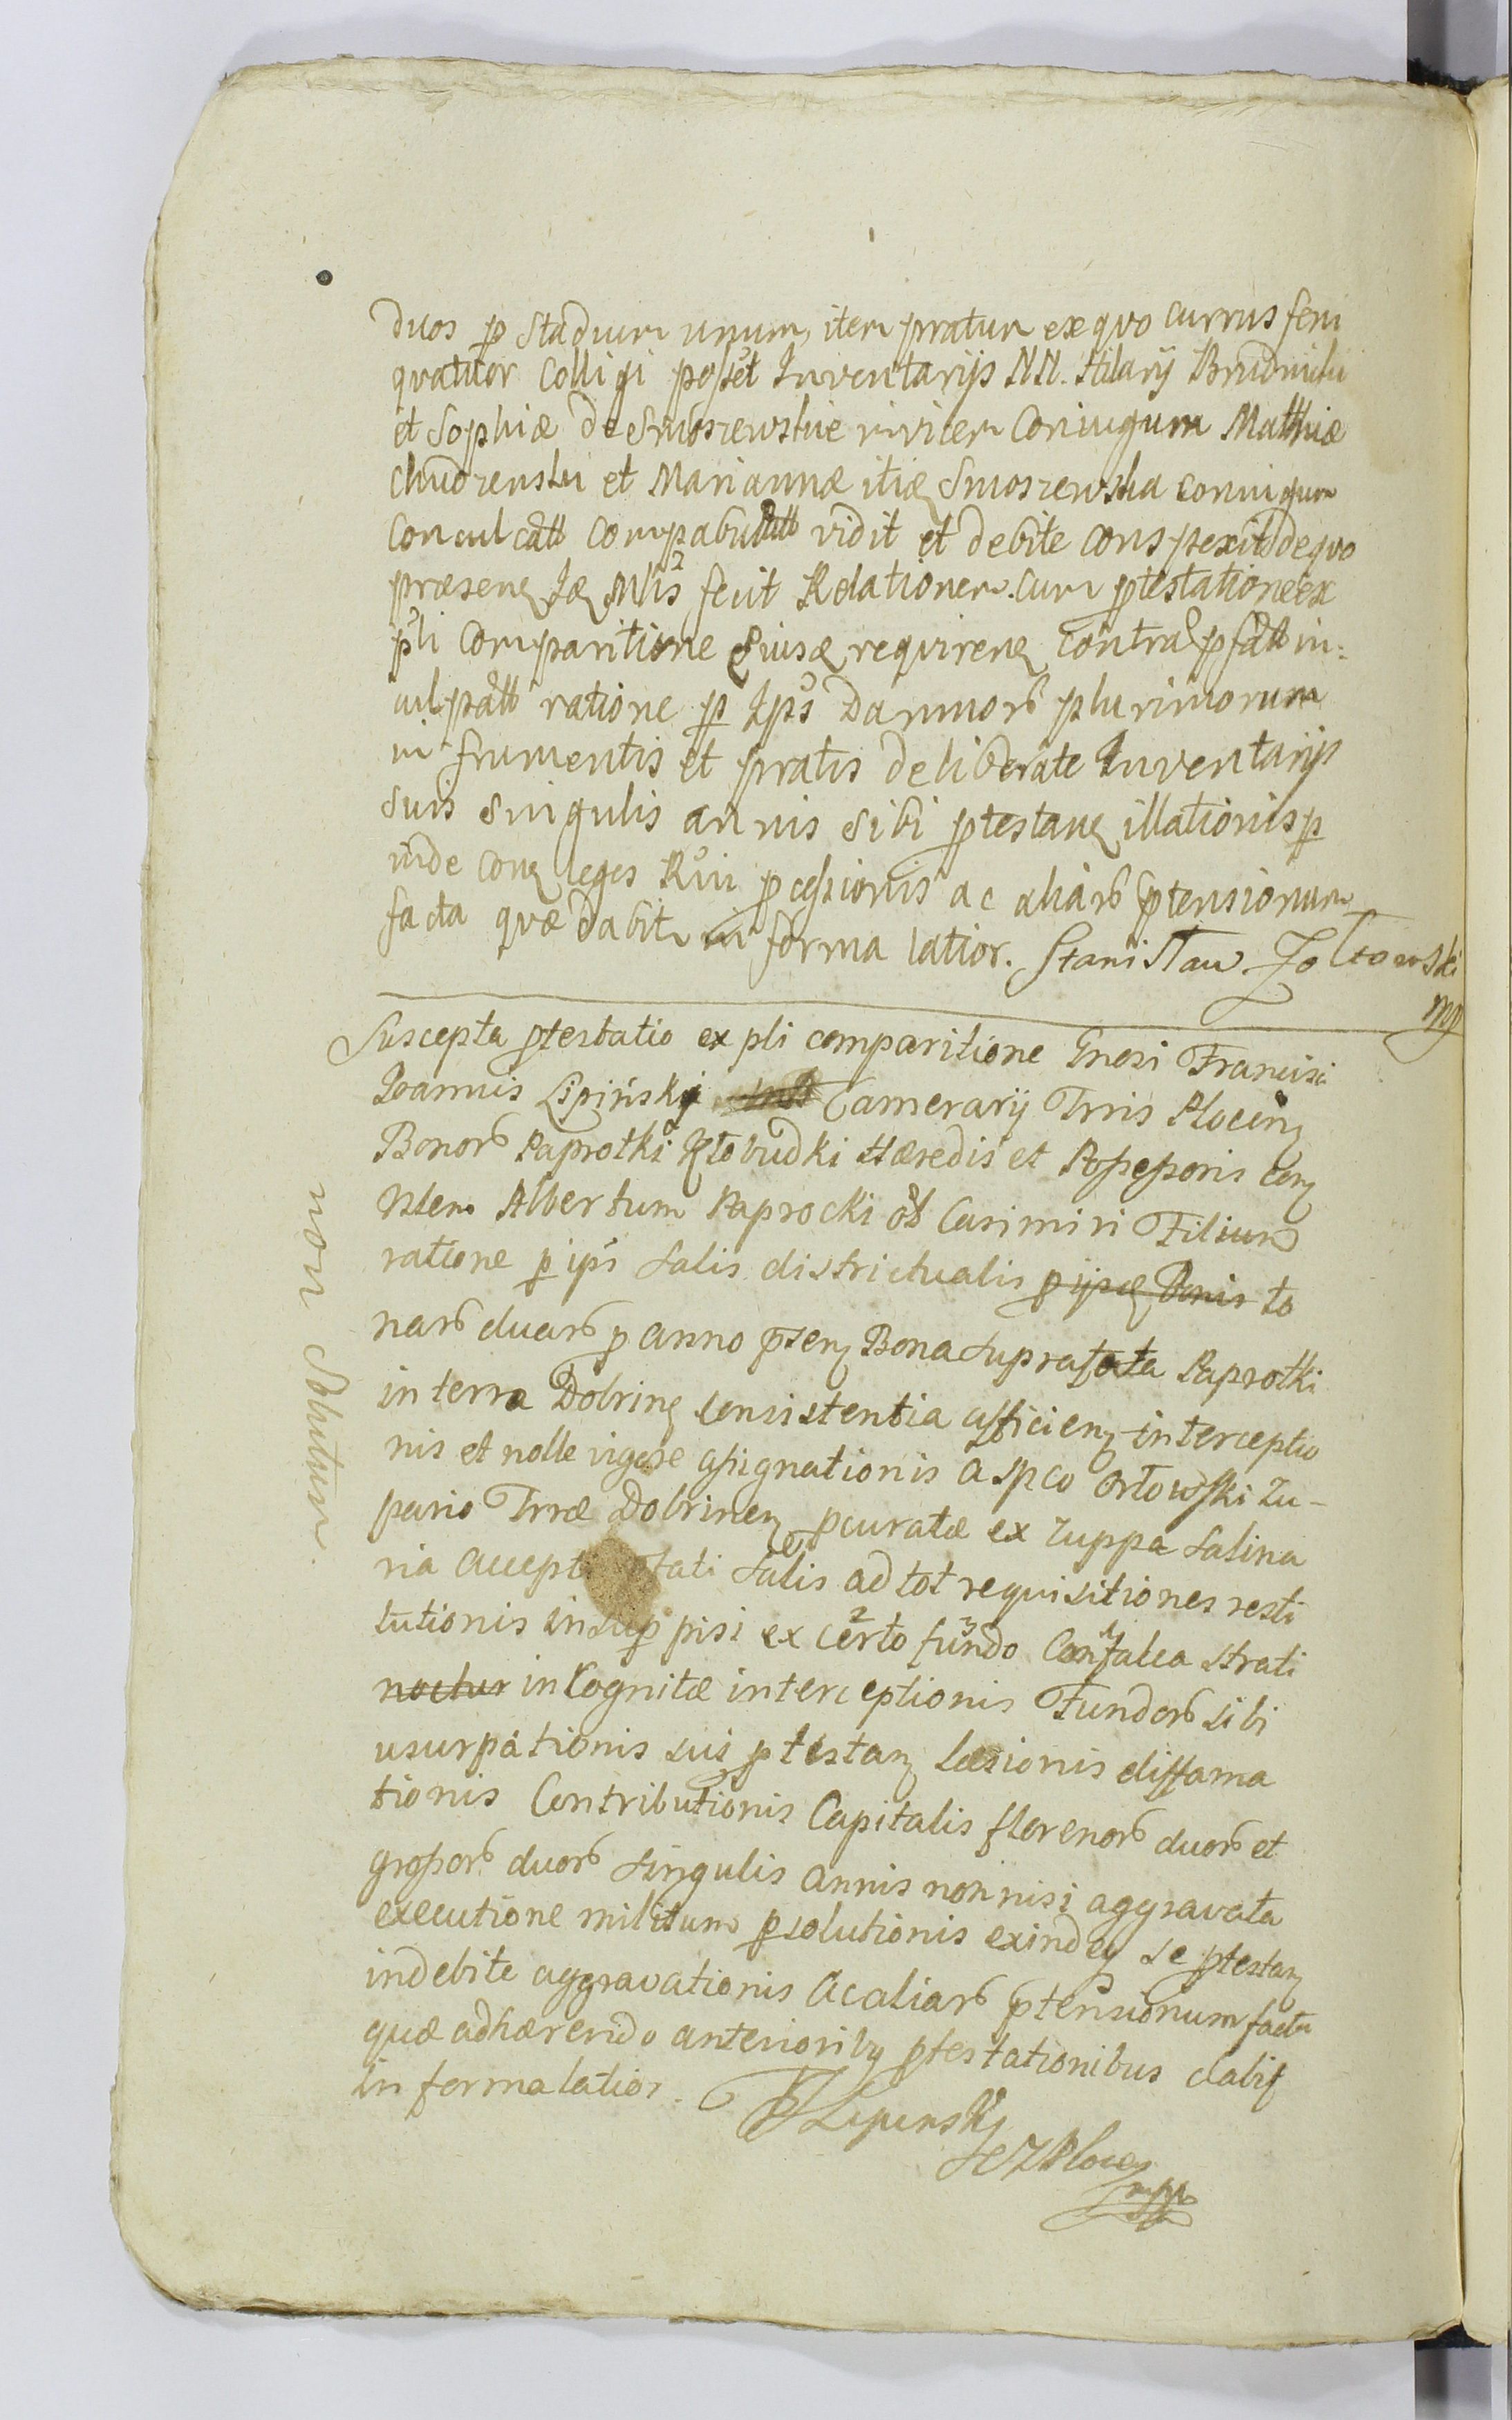 duos p stadium unum, item pratum ex quo currus feni
quatuor colligi posset Inventarijs NN. Hilarij Brudnicki
et Sophiæ de Smoszewskie invicem Coniugum Matthiæ
Chudzenski et Mariannæ itiæ Smoszewska coniugum
conculcatt compabulatt vidit et debite conspexit de quo
præsenz Jæz Mlis fecit Relationem. Cum ptestatione ex
pli comparitione Eiusd requirenz contra pfatt in:
culpatt ratione p Ips Damnor plurimorum
in frumentis et pratis deliberate Inventarijs
suis singulis annis sibi ptestanz illationis p
inde conz leges Rni pcessionis ac aliar ptensionum
facta quæ dabitr in forma latior. Stanisław Zołtowski
mp
Suscepta ptestatio ex pli comparitione Gnosi Francisci
Joannis Lipinskij Camerarij Trris Plocenz
Bonor Paprotki Kłobudki Hæredis et Possessoris conz
Nblem Albertum Paprocki olb Casimiri Filium
ratione p ips salis districtualis p ijsd Bonis to
nar duar p anno psenz Bona suprafata Paprotki
in terra Dobrinz consistentia afficienz interceptio
nis et nolle vigore assignationis a Spco Orłowski Zu-
pario Trræ Dobrinenz pcuratæ ex Zuppa salina
ria accepti stati Salis ad tot requisitiones resti
tutionis insup pisi ex certo fundo Confalca strati
noctur incognitæ interceptionis Fundor sibi
usurpationis suis ptestanz læsionis diffama
tionis Contributionis Capitalis florenor duor et
grossor duor singulis annis non nisi aggravata
executione militum psolutionis exindeq se ptestanz
indebite aggravationis ac aliar ptensionum facta
quæ adhærendo anterioribq ptestationibus dabit
in forma latior. FJLipinsky
SZPlocen
mpp
non Solutum.